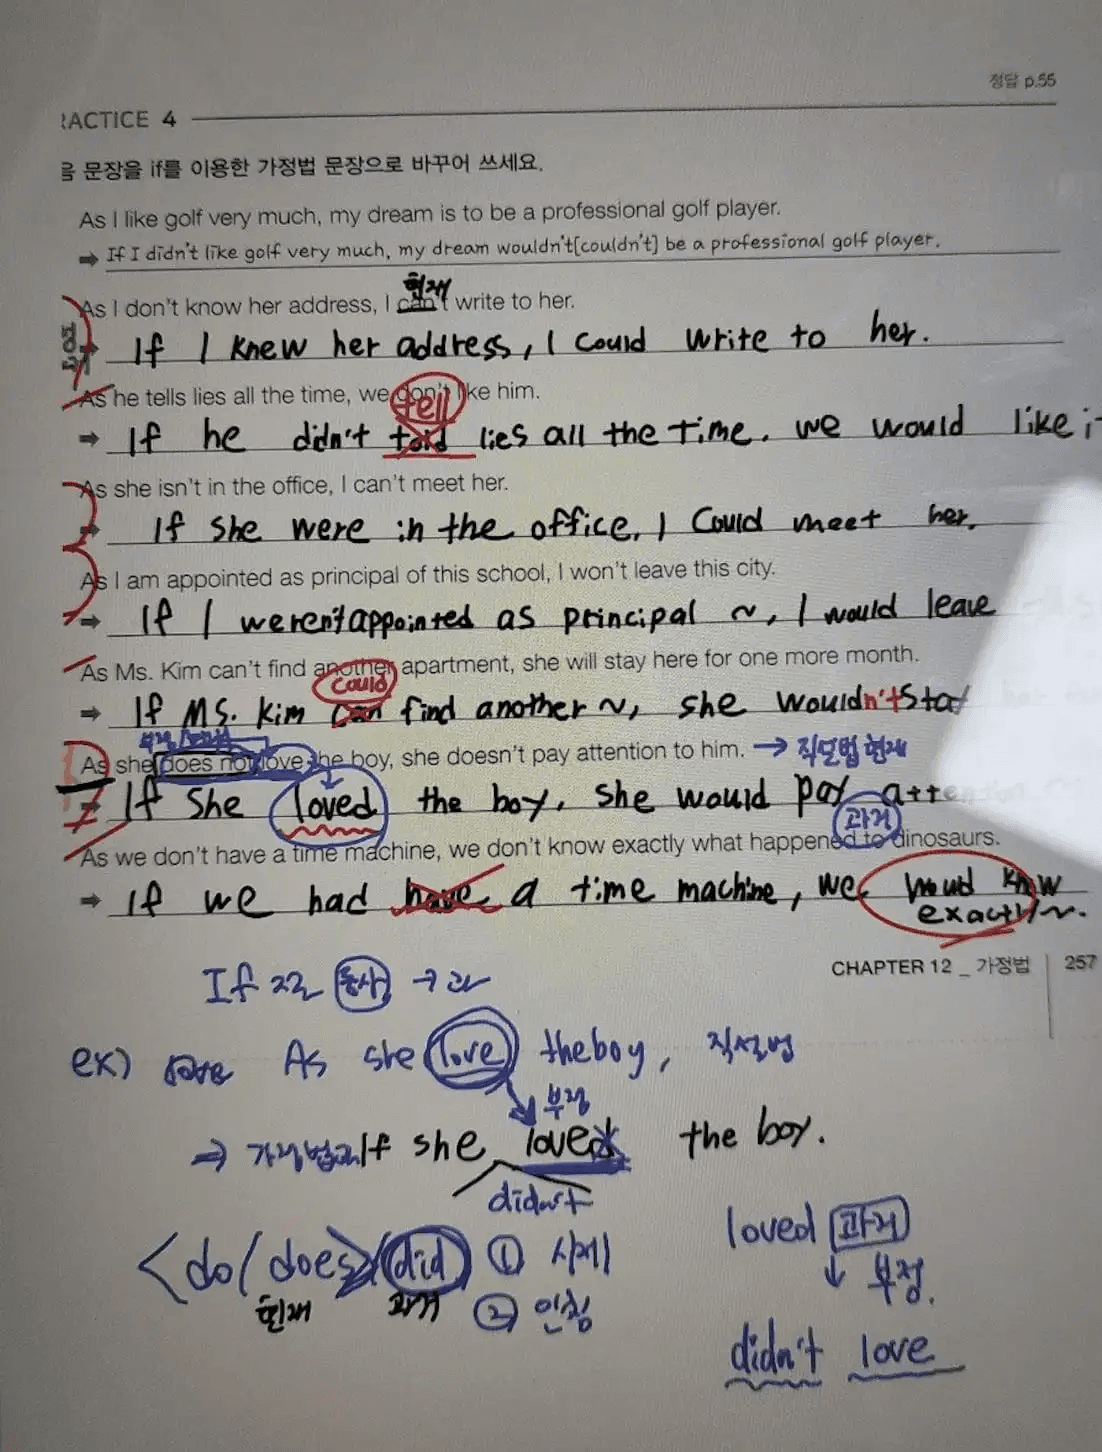 정답 p.55
RACTICE 4
음 문장을 if를 이용한 가정법 문장으로 바꾸어 쓰세요.
As I like golf very much, my dream is to be a professional golf player.
➡ If I didn't like golf very much, my dream wouldn't[couldn't] be a professional golf player.
현재
As I don't know her address, I can't write to her.
➡ If I knew her address, I could write to her.
As he tells lies all the time, we don't like him.
tell
➡ If he didn't told lies all the time. we would like
As she isn't in the office, I can't meet her.
➡ If she were in the office, I could meet her.
As I am appointed as principal of this school, I won't leave this city.
➡ If I weren't appointed as principal ~, I would leave
As Ms. Kim can't find another apartment, she will stay here for one more month.
could
➡ If Ms. Kim can find another ~, she wouldn't stay
As she does not love the boy, she doesn't pay attention to him. → 직설법 현재
➡ If she loved the boy, she would pay atten
과거
As we don't have a time machine, we don't know exactly what happened to dinosaurs.
➡ If we had have a time machine, we would know
exactly~.
CHAPTER 12 _ 가정법 257
If 절 동사 → 과
ex) As she love the boy, 직설법
부정
⇒ 가정법과 If she loved the boy.
didn't
<do/does/did ① 시제
현재 과거 ② 인칭
loved 과거
↓ 부정.
didn't love